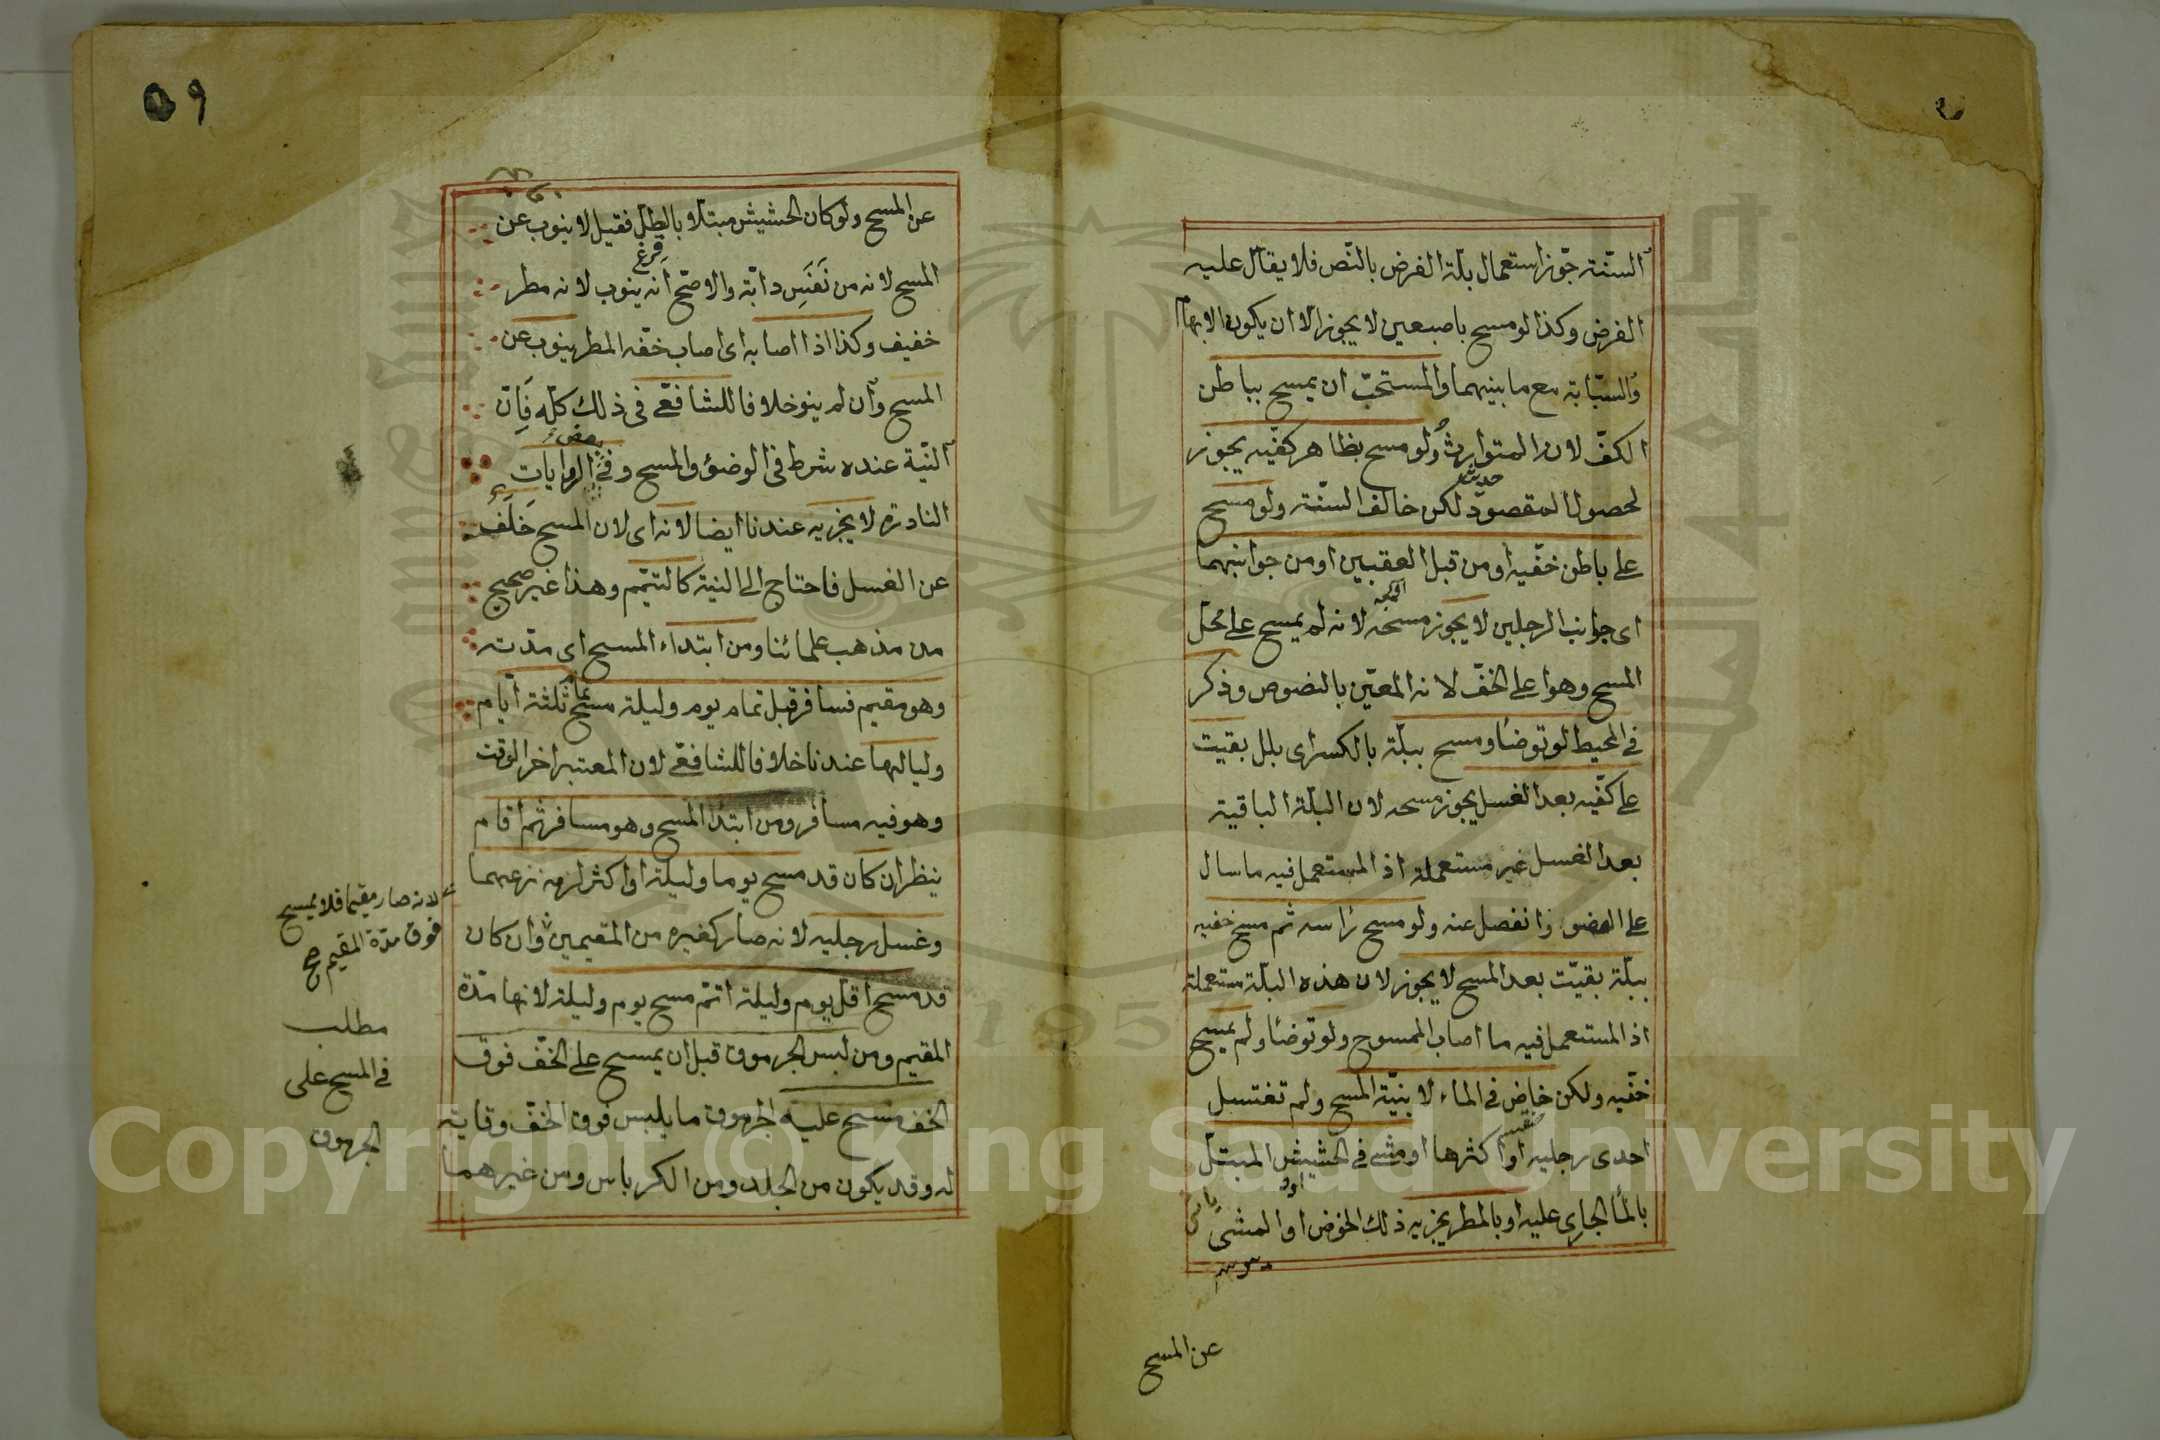 السنة جوز استعمال بلة الفرض بالنص فلا يقاس عليه
الفرض وكذا لو مسح باصبعين لا يجوز الا ان يكون الابهام
والسبابة مع ما بينهما والمستحب ان يمسح بباطن
الكف لان المتوارث ولو مسح بظاهر كفيه يجوز
لحصول المقصود لكن خالف السنة ولو مسح
على باطن خفيه او من قبل العقبين او من جوانبهما
اى جوانب الرجلين لا يجوز مسحه لانه لم يمسح على محل
المسح وهو اعلى الخف لانه المعين بالنصوص وذكر
في المحيط لو توضأ ومسح ببلة بالكسر اى بلل بقيت
على كفيه بعد الغسل يجوز مسحه لان البلة الباقية
بعد الغسل غير مستعملة اذ المستعمل فيه ما سال
على العضو وانفصل عنه ولو مسح رأسه ثم مسح خفيه
ببلة بقيت بعد المسح لا يجوز لان هذه البلة مستعملة
اذ المستعمل فيه ما اصاب الممسوح ولو توضأ ولم يمسح
خفيه ولكن خاض في الماء لا بنية المسح ولم تغتسل
احدى رجليه او اكثرها او مشى في الحشيش المبتل
بالماء الجارى عليه او بالمطر يجزيه ذلك الخوض او المشى
عن المسح
٥٩
عن المسح ولو كان الحشيش مبتلا بالطل فقيل لا ينوب عن
المسح لانه من نفس دابة والاصح انه ينوب لانه مطر
خفيف وكذا اذا اصابه اى اصاب خفه المطر ينوب عن
المسح وان لم ينو خلافا للشافعى فى ذلك كله فان
النية عنده شرط فى الوضوء والمسح وفى بعض الروايات
النادرة لا يجزيه عندنا ايضا لانه اى لان المسح خلف
عن الغسل فاحتاج الى النية كالتيمم وهذا غير صحيح
من مذهب علمائنا ومن ابتداء المسح اى مدته
وهو مقيم فسافر قبل تمام يوم وليلة مسح تمام ثلثة ايام
ولياليها عندنا خلافا للشافعى لان المعتبر اخر الوقت
وهو فيه مسافر ومن ابتدأ المسح وهو مسافر ثم اقام
ينظر ان كان قد مسح يوما وليلة او اكثر لزمه نزعهما
وغسل رجليه لانه صار كغيره من المقيمين وان كان
قد مسح اقل يوم وليلة اتم مسح يوم وليلة لانها مدة
المقيم ومن لبس الجرموق قبل ان يمسح على الخف فوق
الخف مسح عليه الجرموق ما يلبس فوق الخف وقاية
له وقد يكون من الجلد ومن الكرباس ومن غيرهما
لانه صار مقيما فلا يمسح
فوق مدة المقيم صح
مطلب
في المسح على
الجرموق
Copyright © King Saud University